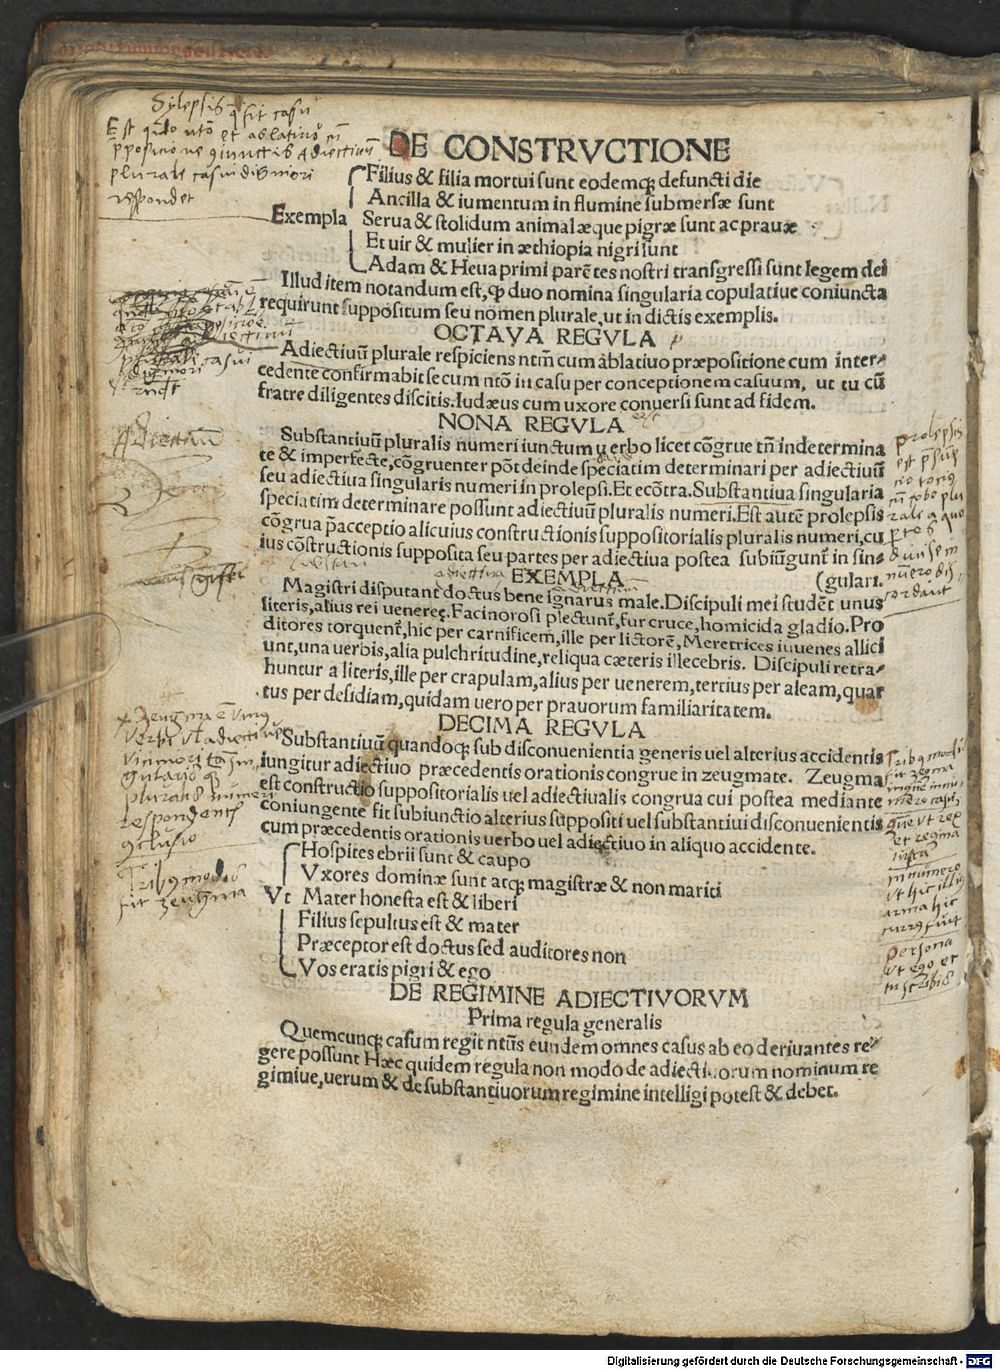 Sylepsis q̄ fit casu
Est qn̄do nt̄o et ablatiuo cū
p̄posicione giunctis Adiectiuū
plurale casui digniori
respondet
DE CONSTRVCTIONE
Filius & filia mortui sunt eodemqꝫ defuncti die
Ancilla & iumentum in flumine submersæ sunt
Exempla Serua & stolidum animal æque pigræ sunt ac prauæ
Et uir & mulier in æthiopia nigri sunt
Adam & Heua primi parētes nostri transgressi sunt legem dei
Illud item notandum est, ꝙ duo nomina singularia copulatiue coniuncta
requirunt suppositum seu nomen plurale, ut in dictis exemplis.
OCTAVA REGVLA
Adiectiuū plurale respiciens ntm̄ cum ablatiuo præpositione cum inter-
cedente confirmabit se cum ntō in casu per conceptionem casuum, ut tu cū
fratre diligentes discitis. Iudæus cum uxore conuersi sunt ad fidem.
NONA REGVLA
Substantiuū pluralis numeri iunctum uerbo licet cōgrue tn̄ indetermina
te & imperfecte, cōgruenter pōt deinde speciatim determinari per adiectiuū
seu adiectiua singularis numeri in prolepsi. Et ecōtra. Substantiua singularia
speciatim determinare possunt adiectiuū pluralis numeri. Est autē prolepsis
cōgrua p̄acceptio alicuius constructionis suppositorialis pluralis numeri, cu
ius cōstructionis supposita seu partes per adiectiua postea subiūgunt̄ in sin-
EXEMPLA (gulari.
Magistri disputant doctus bene ignarus male. Discipuli mei studēt unus
literis, alius rei uenereę. Facinorosi plectunt̄, fur cruce, homicida gladio. Pro
ditores torquent̄, hic per carnificem, ille per lictorē, Meretrices iuuenes allici
unt, una uerbis, alia pulchritudine, reliqua cæteris illecebris. Discipuli retra-
huntur a literis, ille per crapulam, alius per uenerem, tertius per aleam, quar
tus per desidiam, quidam uero per prauorum familiaritatem.
DECIMA REGVLA
Substantiuū quandoqꝫ sub disconuenientia generis uel alterius accidentis
iungitur adiectiuo præcedentis orationis congrue in zeugmate. Zeugma
est constructio suppositorialis uel adiectiualis congrua cui postea mediante
coniungente fit subiunctio alterius suppositi uel substantiui disconuenientis
cum præcedentis orationis uerbo uel adiectiuo in aliquo accidente.
Hospites ebrii sunt & caupo
Vxores dominæ sunt atqꝫ magistræ & non mariti
Vt Mater honesta est & liberi
Filius sepultus est & mater
Præceptor est doctus sed auditores non
Vos eratis pigri & ego
DE REGIMINE ADIECTIVORVM
Prima regula generalis
Quemcunqꝫ casum regit ntūs eundem omnes casus ab eo deriuantes re-
gere possunt Hæc quidem regula non modo de adiectiuorum nominum re
gimiue, uerum & de substantiuorum regimine intelligi potest & debet.
Adiectiuū
prolepsis
plurali numeri
respondens
Tribus modis
fit zeugma
Tribus modis
fit zeugma
ut rex
et regina
in numero
ut hic illius
arma hic
currus fuit
persona
ut ego et
tu scribis
Digitalisierung gefördert durch die Deutsche Forschungsgemeinschaft - DFG